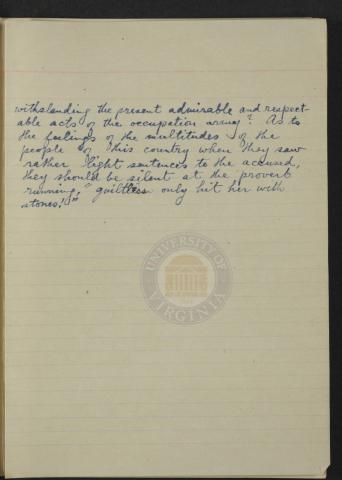 withstanding the present admirable and respect-
able acts of the occupation army? As to
the feelings of the multitudes of the
people of this country when they saw
rather light sentences to the accused,
they should be silent at the proverb
running, "guiltless only hit her with
stones!"
UNIVERSITY OF
VIRGINIA